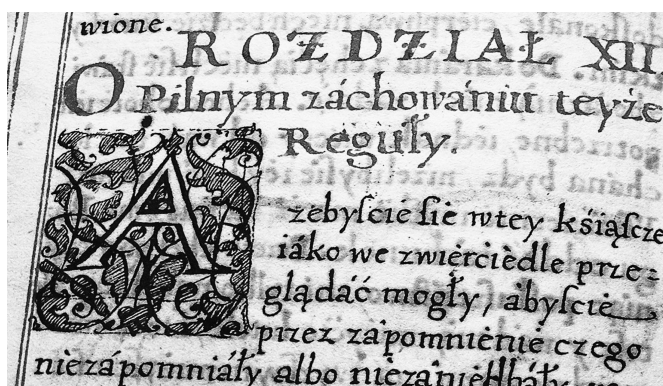 wione.
ROZDZIAŁ XII.
O Pilnym záchowániu teyże
Reguły.
Ażebyſcie ſie wtey kśiąſzce
iáko we zwiercièdle prze⸗
glądáć mogły, ábyſcie
przez zápomnienie czego
niezápomniáły álbo niezániedbáły